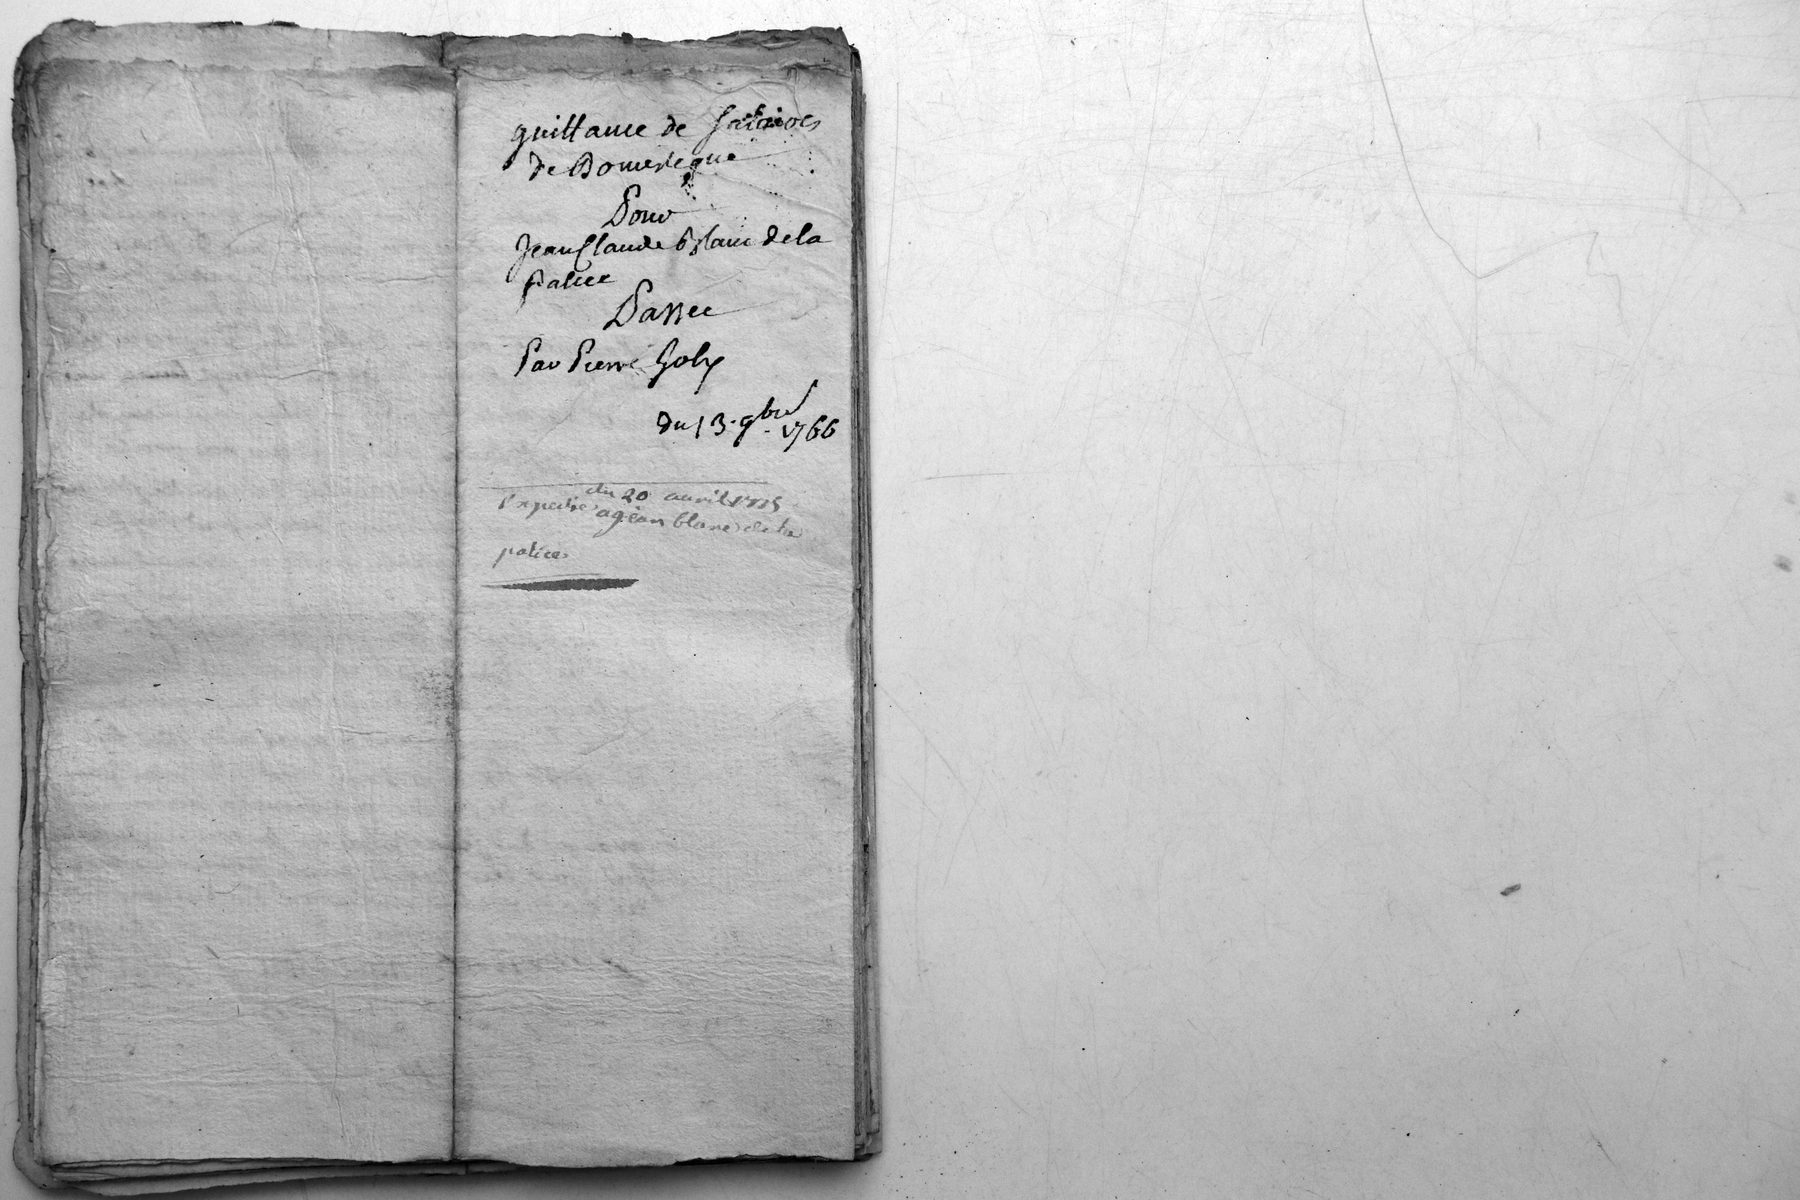 quittance de salaires
de Domesteque
Pour
Jean Claude Blanc dela
palice
Passee
Par Pierre Joly
du 13. 9bre 1766
du 20 avril
Expedie a jean blanc de la
palice